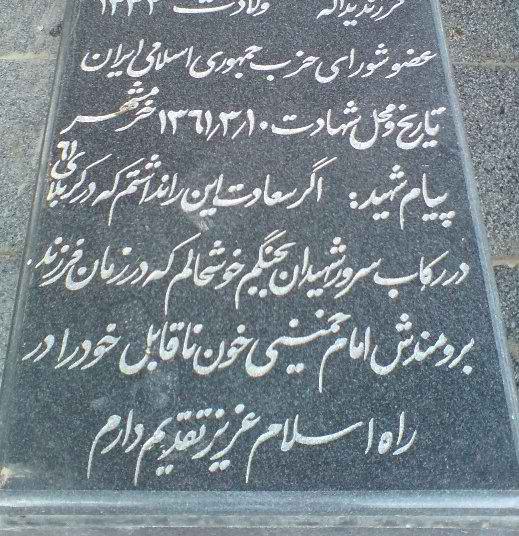 فرزند یداله ولادت ۱۳۳۲
عضو شورای حزب جمهوری اسلامی ایران
تاریخ و محل شهادت ۱۳۶۱/۳/۱۰ خرمشهر
پیام شهید: اگر سعادت این را نداشتم که در کربلای ۶۱
در رکاب سرور شهیدان بجنگم خوشحالم که در زمان فرزند
برومندش امام خمینی خون ناقابل خود را در
راه اسلام عزیز تقدیم دارم